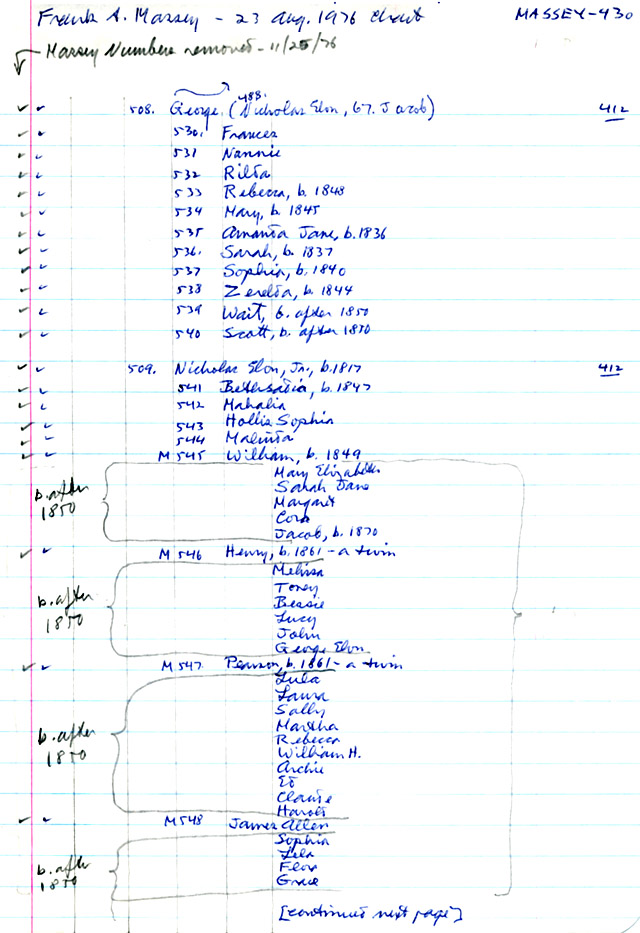 Frank A. Massey - 23 Aug. 1976 chart MASSEY-430
Massey Numbers removed - 11/25/76
488.
508. George (Nicholas Elon, 67. Jacob) 412
530. Frances
531 Nannie
532 Rilda
533 Rebecca, b. 1848
534 Mary, b. 1845
535 Amanda Jane, b. 1836
536. Sarah, b. 1837
537 Sophia, b. 1840
538 Zerelda, b. 1844
539 Wait, b. after 1850
540 Scott, b. after 1850
509. Nicholas Elon, Jr., b. 1817 412
541 Bethsadia, b. 1847
542 Mahalia
543 Hollis Sophia
544 Malinda
M 545 William, b. 1849
b. after 1850
Mary Elizabeth
Sarah Jane
Margaret
Cora
Jacob, b. 1870
M 546 Henry, b. 1861 - a twin
b. after 1850
Melissa
Toney
Bessie
Lucy
John
George Elon
M 547 Pearson, b. 1861 - a twin
b. after 1850
Lula
Laura
Sally
Martha
Rebecca
William H.
Archie
Ed
Claude
Harold
M 548 James Allen
b. after 1850
Sophia
Lela
Flora
Grace
[continued next page]